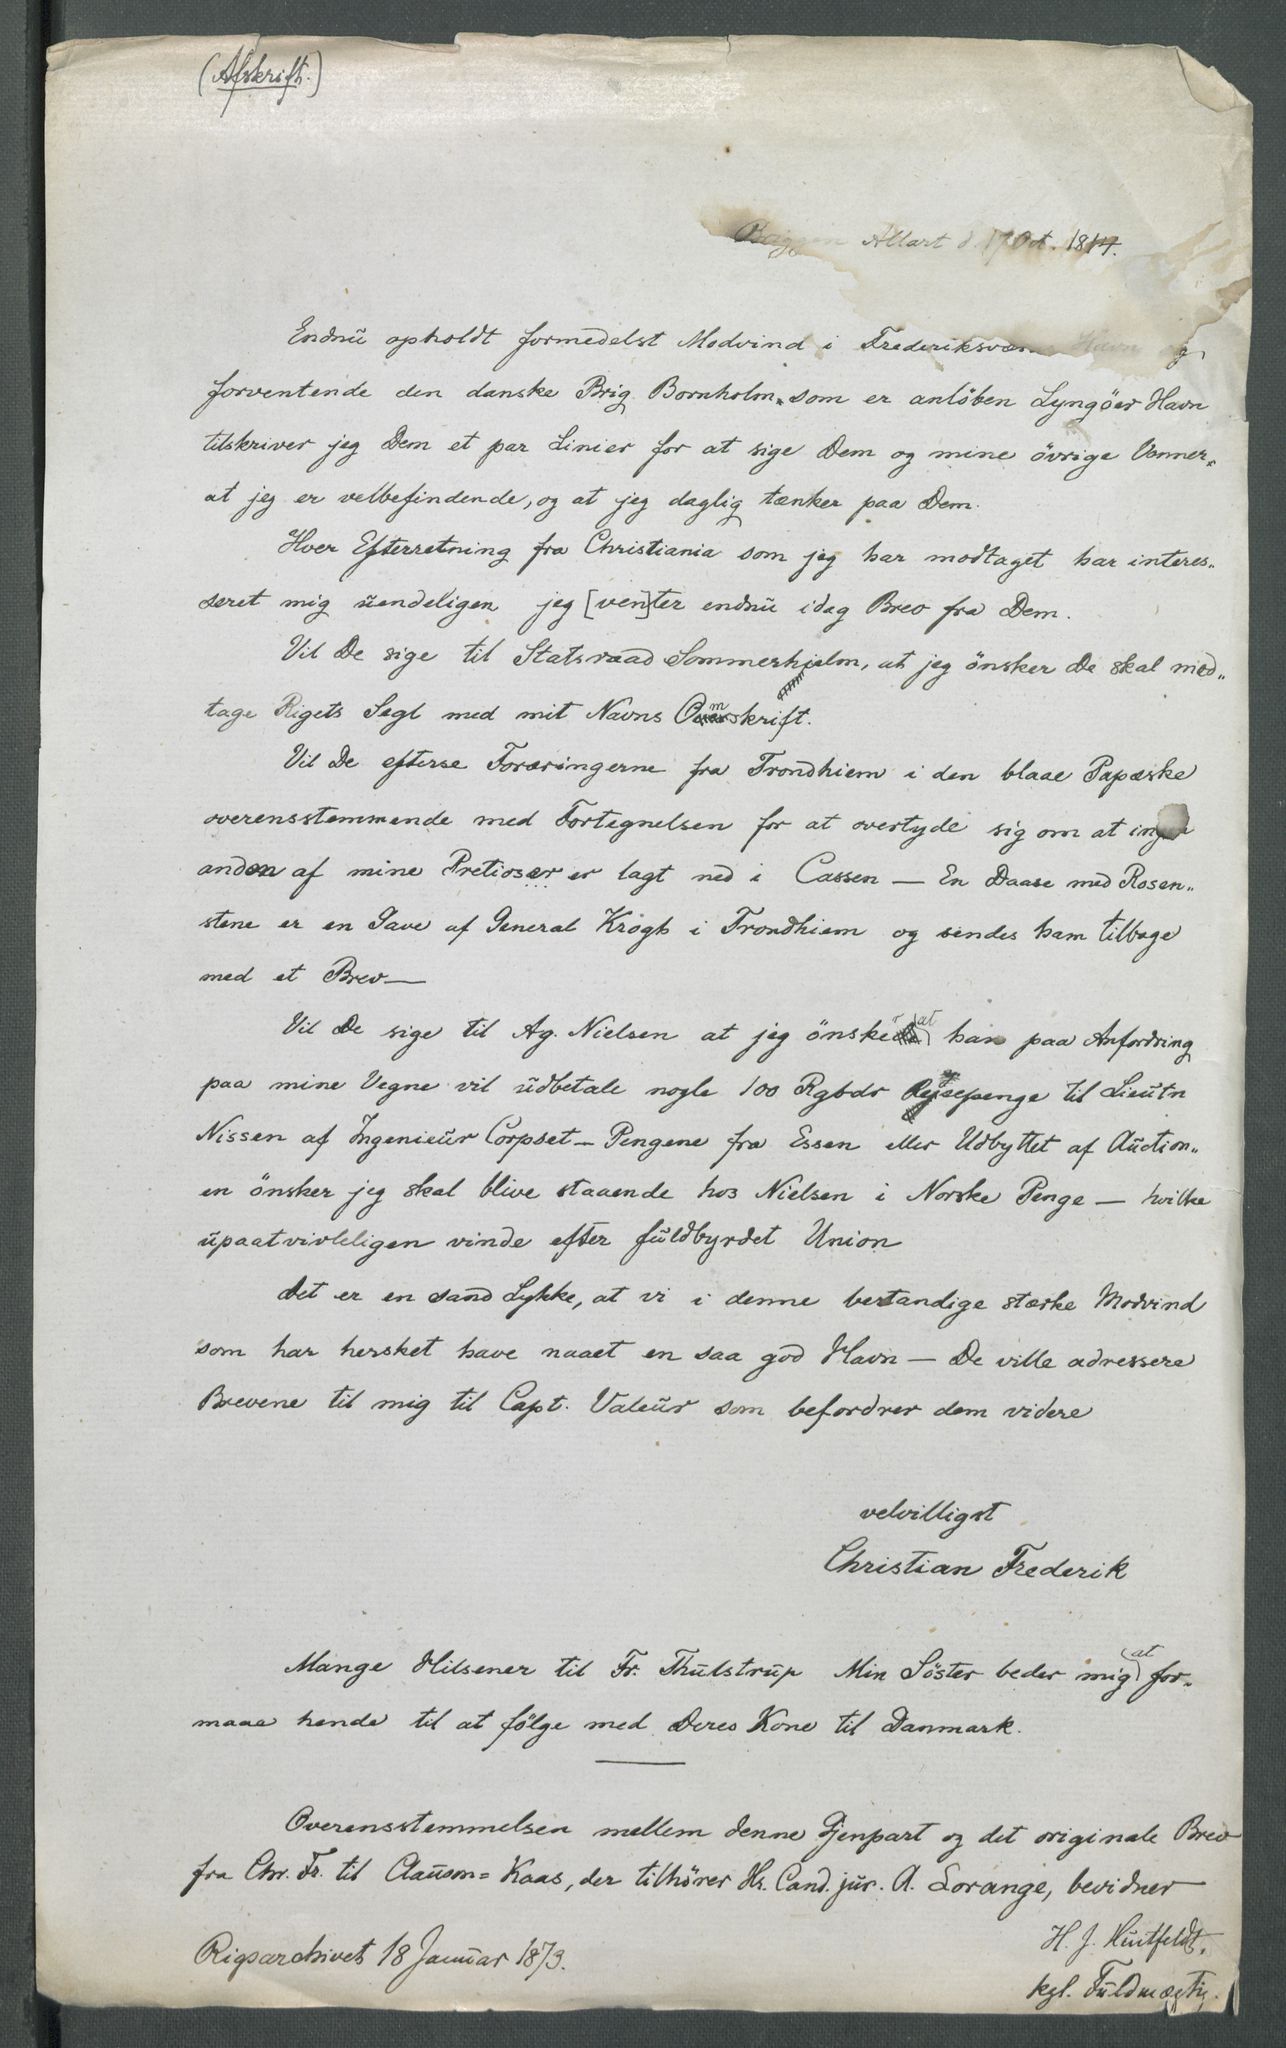 (Afskrift.)
Briggen Allart d. 17 Oct. 1814.
Endnu opholdt formedelst Modvind i Frederiksværns Havn og
forventende den danske Brig Bornholm, som er anlöben Lyngöer Havn
tilskriver jeg Dem et par Linier for at sige Dem og mine övrige Venner,
at jeg er velbefindende, og at jeg daglig tænker paa Dem.
Hver Efterretning fra Christiania som jeg har modtaget har interes„
seret mig uendeligen jeg [ven]ter endnu idag Brev fra Dem.
Vil De sige til Statsraad Sommerhjelm, at jeg önsker De skal mod„
tage Rigets Segl med mit Navns Omskrift.
Vil De efterse Foræringerne fra Trondhiem i den blaae Papæske
overensstemmende med Fortegnelsen for at overtyde sig om at ingen
anden af mine Pretioser er lagt ned i Cassen — En Daase med Rosen„
stene er en Gave af General Krogh i Trondhiem og sendes ham tilbage
med et Brev—
Vil De sige til Ag. Nielsen at jeg önsker at han paa Anfordring
paa mine Vegne vil udbetale nogle 100 Rgbdr Rejsepenge til Lieutn
Nissen af Ingenieur Corpset — Pengene fra Essen eller Udbyttet af Auction„
en önsker jeg skal blive staaende hos Nielsen i Norske Penge — hvilke
upaatvivleligen vinde efter fuldbyrdet Union
Det er en sand Lykke, at vi i denne bestandige stærke Modvind
som har hersket have naaet en saa god Havn — De ville adressere
Brevene til mig til Capt. Valeur som befordrer dem videre
velvilligst
Christian Frederik
Mange Hilsener til Fr. Thulstrup Min Söster beder mig at for„
maae hende til at fölge med Deres Kone til Danmark.
Overensstemmelsen mellem denne Gjenpart og det originale Brev
fra Chr. Fr. til Clauson=Kaas, der tilhörer Hr. Cand. jur. A. Lorange, bevidner
H. J. Huitfeldt,
Rigsarchivet 18 Januar 1873.
kgl. Fuldmægtig.